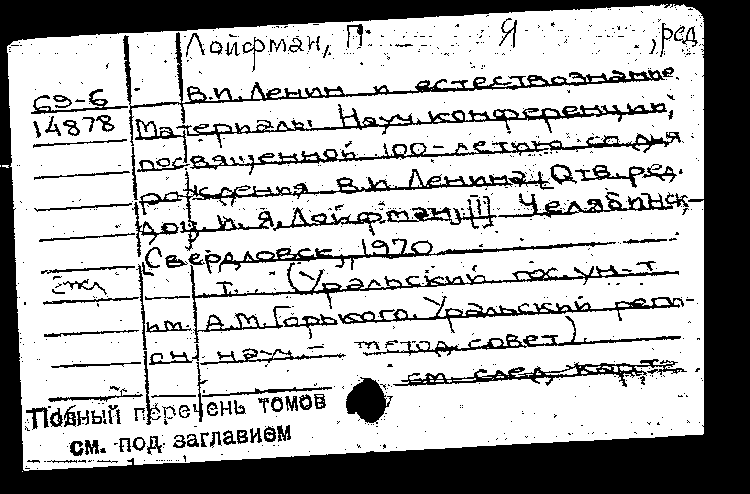 Лойфман, И. Я., ред.
69-6 В.И. Ленин и естествознание.
14878 Материалы Науч. конференции,
посвященной 100-летию со дня
рождения В.И. Ленина, Отв. ред.
доц. И. Я. Лойфман, [1] Челябинск-
Свердловск, 1970
т. (Уральский гос. ун-т
им. А.М. Горького. Уральский реги-
он. науч.- метод. совет)
см. след. карт.
Полный перечень томов
см. под заглавием